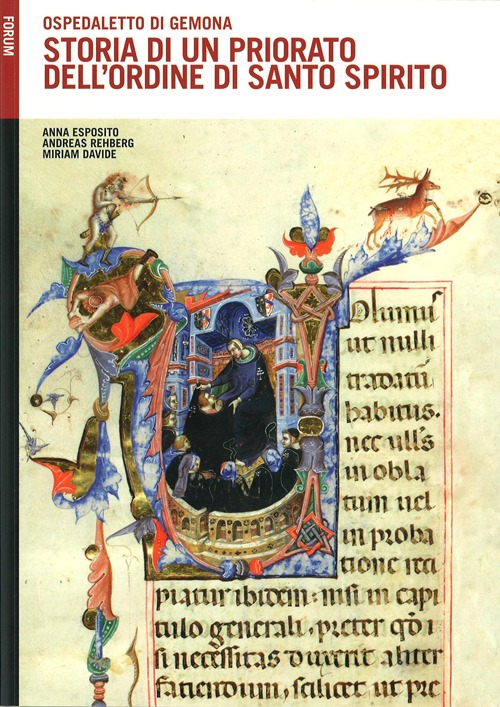 FORUM
OSPEDALETTO DI GEMONA
STORIA DI UN PRIORATO
DELL'ORDINE DI SANTO SPIRITO
ANNA ESPOSITO
ANDREAS REHBERG
MIRIAM DAVIDE
Uolumus
ut nulli
habitus.
nec
in obla
tum uel
in proba
tione reci
piatur ibidem: nisi in capi
tulo generali, preter
si necessitas duxerit aliter
fatiendum, scilicet ut pre